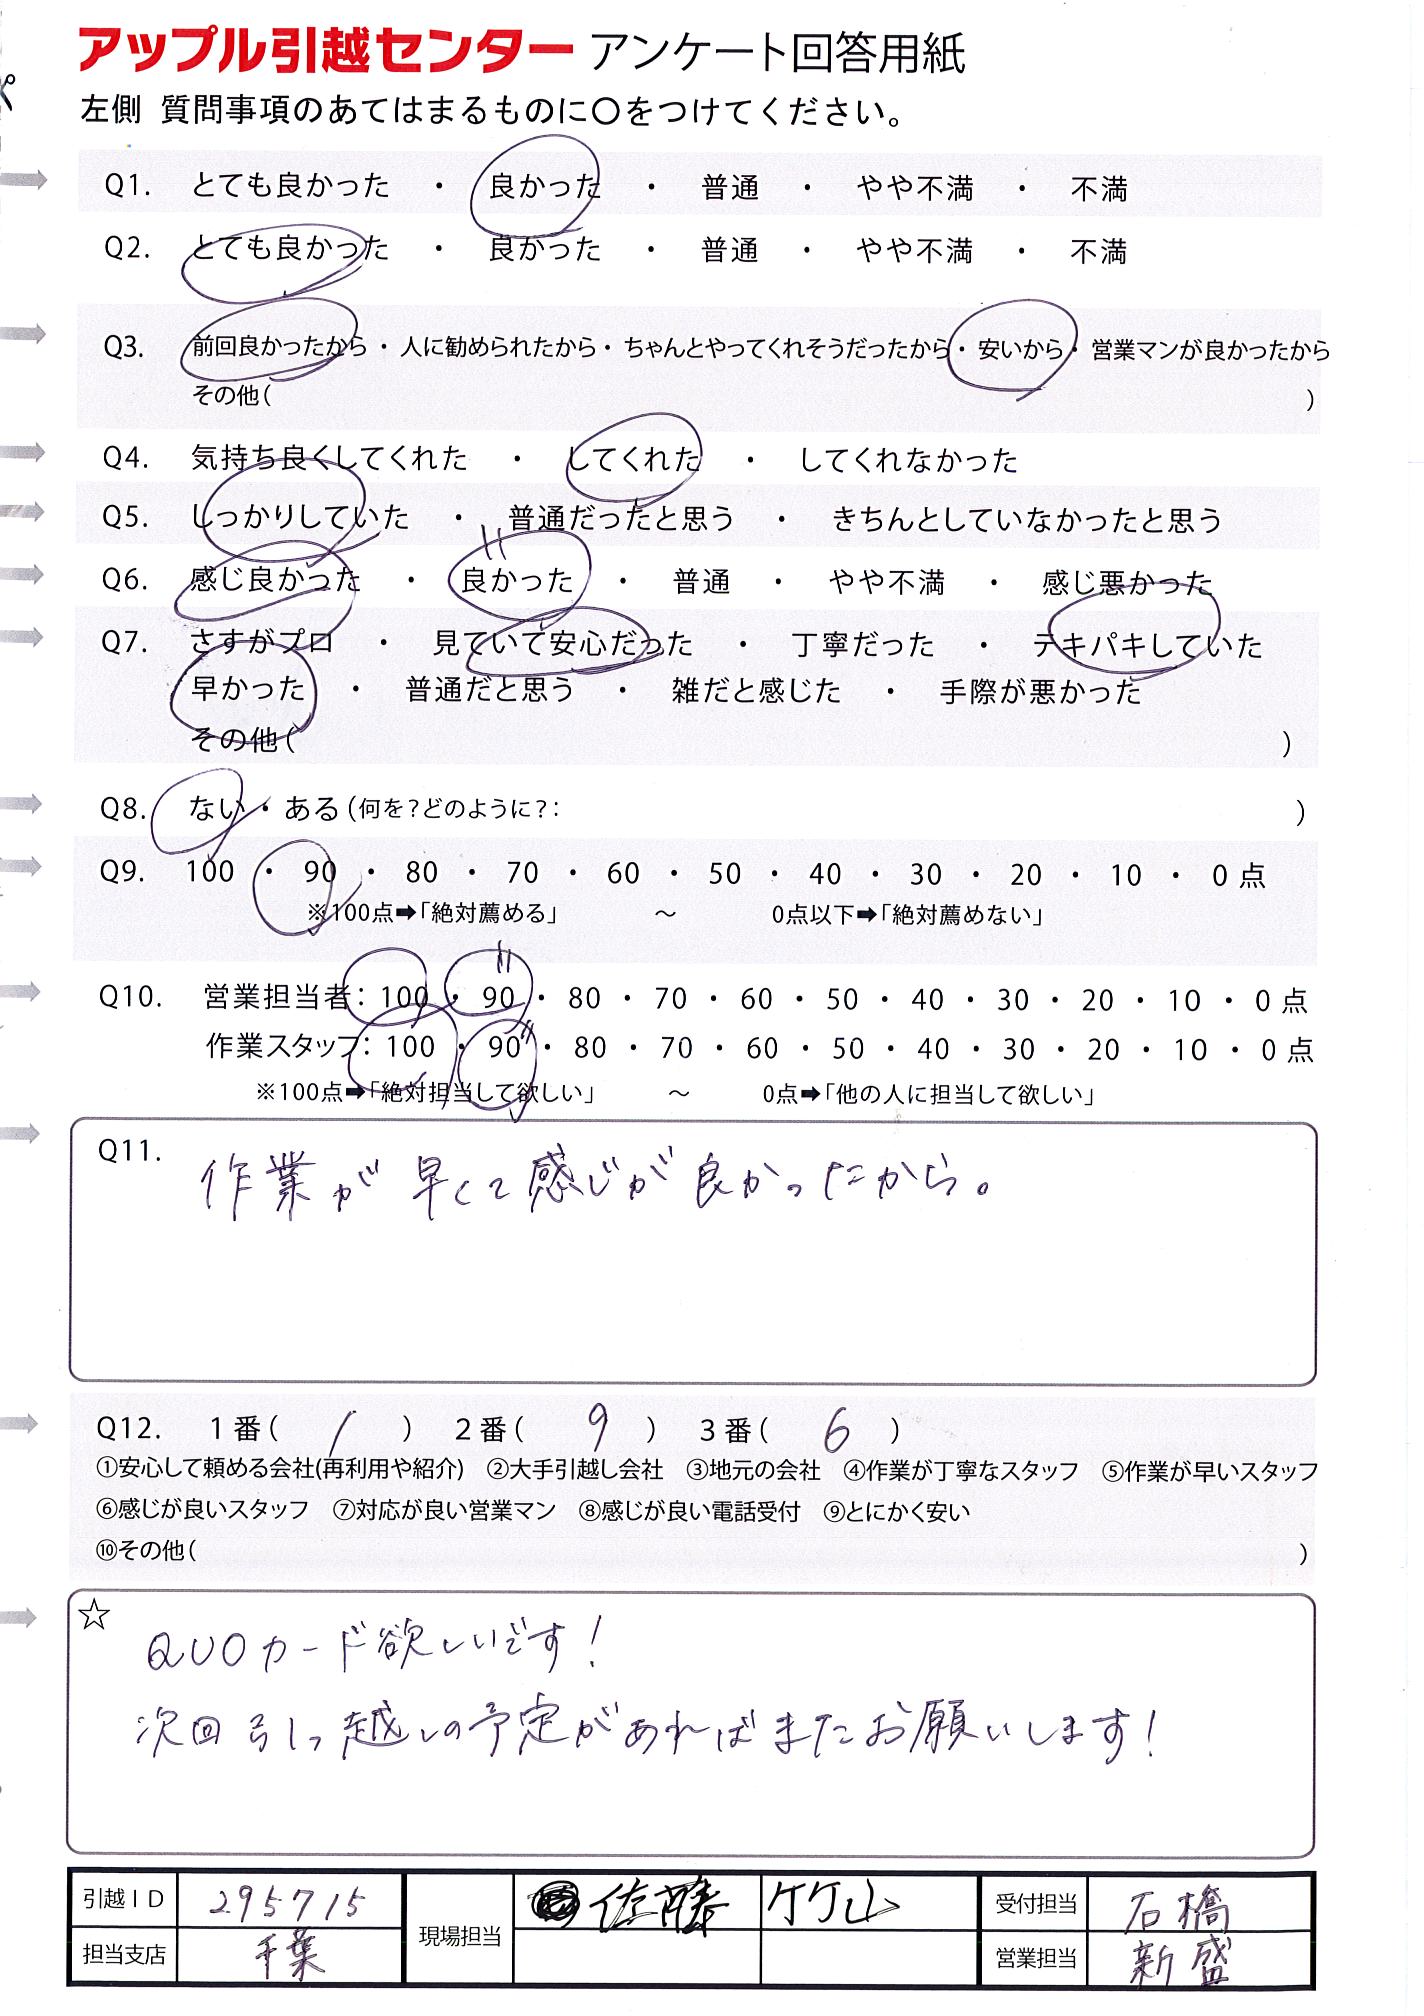 アップル引越センター アンケート回答用紙
左側 質問事項のあてはまるものに〇をつけてください。
Q1. とても良かった ・ 良かった ・ 普通 ・ やや不満 ・ 不満
Q2. とても良かった ・ 良かった ・ 普通 ・ やや不満 ・ 不満
Q3. 前回良かったから・人に勧められたから・ちゃんとやってくれそうだったから・安いから・営業マンが良かったから
その他( )
Q4. 気持ち良くしてくれた ・ してくれた ・ してくれなかった
Q5. しっかりしていた ・ 普通だったと思う ・ きちんとしていなかったと思う
Q6. 感じ良かった ・ 良かった ・ 普通 ・ やや不満 ・ 感じ悪かった
Q7. さすがプロ ・ 見ていて安心だった ・ 丁寧だった ・ テキパキしていた
早かった ・ 普通だと思う ・ 雑だと感じた ・ 手際が悪かった
その他( )
Q8. ない・ある(何を?どのように?: )
Q9. 100 ・ 90 ・ 80 ・ 70 ・ 60 ・ 50 ・ 40 ・ 30 ・ 20 ・ 10 ・ 0点
※100点➡「絶対薦める」 ～ 0点以下➡「絶対薦めない」
Q10. 営業担当者: 100 ・ 90 ・ 80 ・ 70 ・ 60 ・ 50 ・ 40 ・ 30 ・ 20 ・ 10 ・ 0点
作業スタッフ: 100 ・ 90 ・ 80 ・ 70 ・ 60 ・ 50 ・ 40 ・ 30 ・ 20 ・ 10 ・ 0点
※100点➡「絶対担当して欲しい」 ～ 0点➡「他の人に担当して欲しい」
Q11. 作業が早くて感じが良かったから。
Q12. 1番( 1 ) 2番( 9 ) 3番( 6 )
①安心して頼める会社(再利用や紹介) ②大手引越し会社 ③地元の会社 ④作業が丁寧なスタッフ ⑤作業が早いスタッフ
⑥感じが良いスタッフ ⑦対応が良い営業マン ⑧感じが良い電話受付 ⑨とにかく安い
⑩その他( )
☆
QUOカード欲しいです!
次回引っ越しの予定があればまたお願いします!
引越ID 295715 現場担当 佐藤 竹山 受付担当 石橋
担当支店 千葉 営業担当 新盛